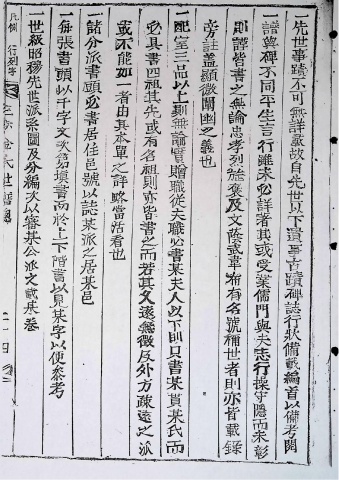 先世事蹟不可無詳載故自先世以下遺事古蹟碑誌行狀備載編首以備考閱
譜與碑不同平生言行雖未必詳著其或受業儒門與夫志行操守隱而未彰
則譯皆書之無論忠孝烈旌褒及文蔭武韋布有名號稱世者則亦皆載錄
旁註盖顯微闡幽之義也
一配室三品以上則無論實贈職從夫職必書某夫人以下則只書某貫某氏而
必具書四祖其先或有名祖則亦皆書之而若其久遠無徵及外方疎遠之派
或不能如一者由其來單之詳略當活看也
一諸分派書頭必書居住邑號以誌某派之居某邑
一每張書頭以千字文次第塡書而於上下階書以見某字以便叅考
一世級昭穆先世派系圖及分編次以審某公派之載某卷
凡例 行列字